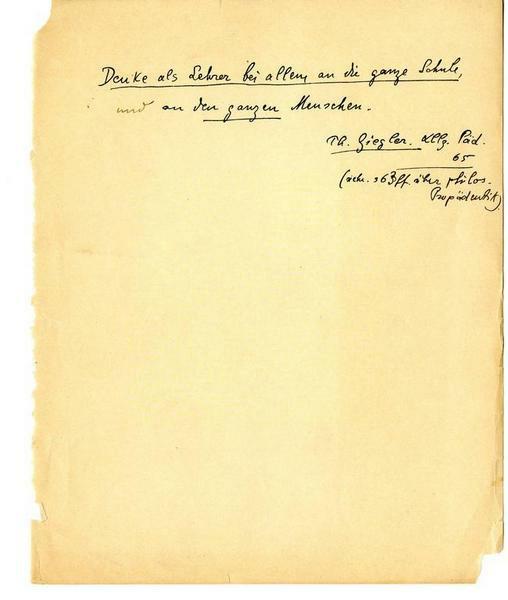 Denke als Lehrer bei allem an die ganze Schule,
und an den ganzen Menschen.
Th. Ziegler. Allg. Päd.
65
(siehe. S 63ff über philos.
Propädeutik)